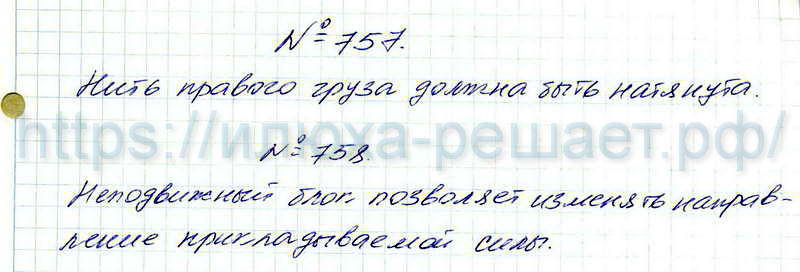 № 757.
Нить правого груза должна быть натянута.
https://илюха-решает.рф/
№ 758.
Неподвижный блок позволяет изменять направ-
ление прикладываемой силы.